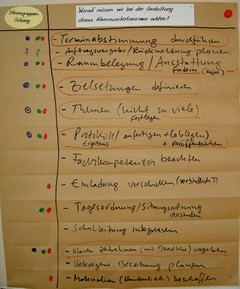 Steuergruppen
Sitzung
Worauf müssen wir bei der Gestaltung
dieses Kommunikationsraums achten?
- Terminabstimmung durchführen
- Auftragsvergabe/Rückmeldung planen
- Raumbelegung/Ausstattung
- Zielsetzungen definieren
- Themen (nicht zu viele)
festlegen
- Protokoll/anfertigen (+ablegen)
Ergebnis + veröffentlichen
- Fachkompetenzen beachten
- Einladung verschicken (verbindlich?)
- Tagesordnung/Sitzungsordnung
- Schulleitung integrieren
- (mit Deadline)
- Heterogene Besetzung planen
- Materialien beschaffen